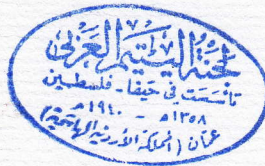 لجنة اليتيم العربي
تأسست في حيفا - فلسطين
١٣٥٨هـ - ١٩٤٠م
عمّان (المملكة الأردنية الهاشمية)